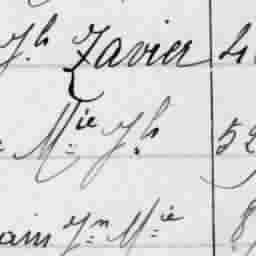 Jh Zavier 4
Mie Jh 52
ain Jn Mie 8